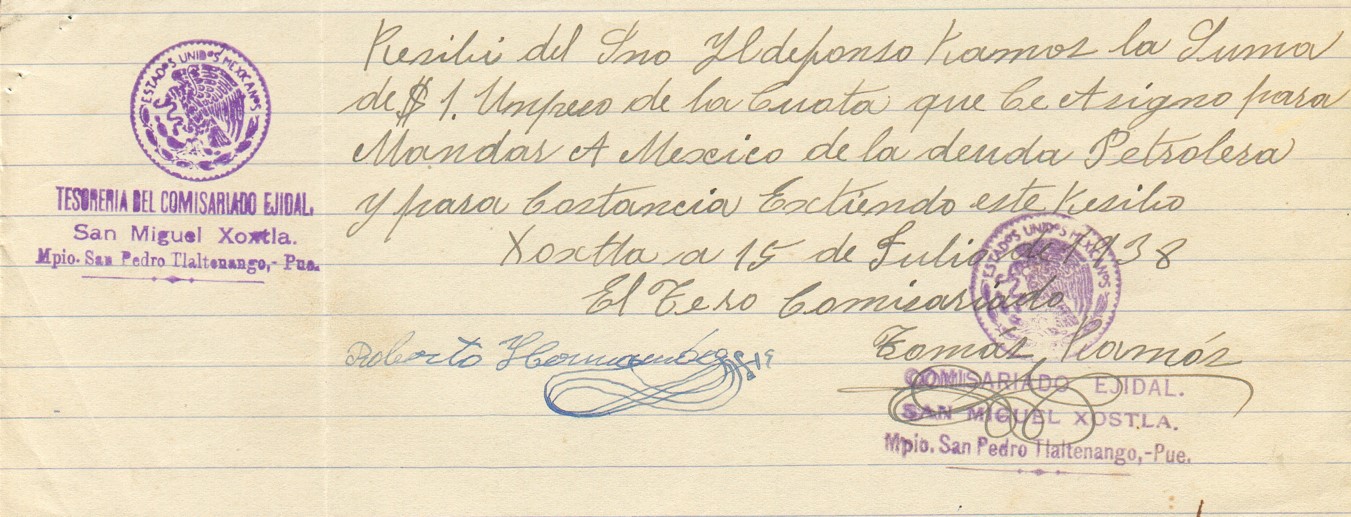 ESTADOS UNIDOS MEXICANOS
TESORERIA DEL COMISARIADO EJIDAL.
San Miguel Xoxtla.
Mpio. San Pedro Tlaltenango,- Pue.
Resibi del Sno Yldefonso Ramos la Suma
de $ 1. Unpeso de la Cuota que Ce Asigno para
Mandar A Mexico de la deuda Petrolera
y para Costancia Extiendo este Resibo
Xoxtla a 15 de Julio de 1938
El Tero Comisariado
Roberto Hernandez
Tomás Ramós
ESTADOS UNIDOS MEXICANOS
COMISARIADO EJIDAL.
SAN MIGUEL XOSTLA.
Mpio. San Pedro Tlaltenango,-Pue.